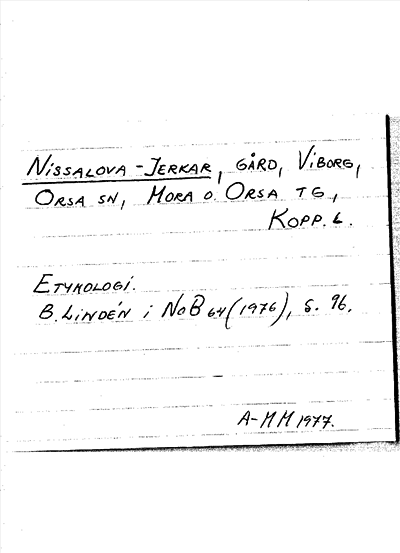 Nissalova-Jerkar, gård, Viborg,
Orsa sn, Mora o. Orsa tg,
Kopp. l.
Etymologi.
B. Lindén i NoB 64 (1976), s. 96.
A-MM 1977.